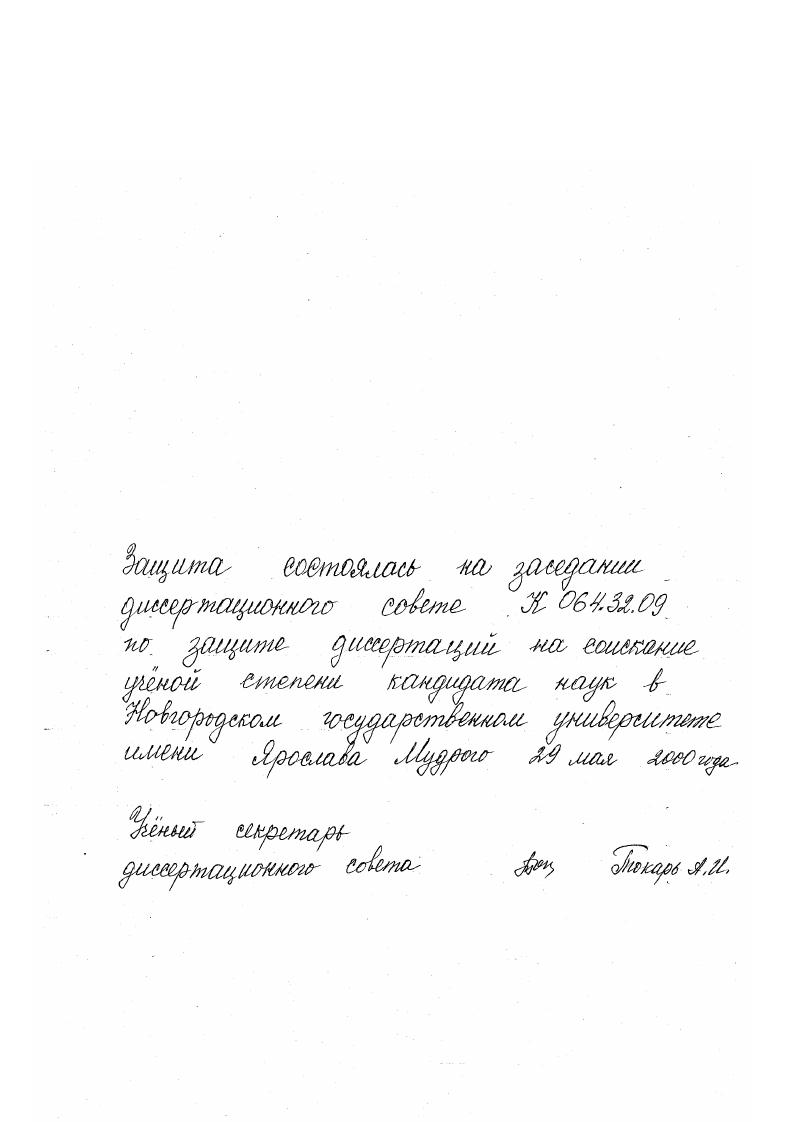 Защита состоялась на заседании
диссертационного совете К 064.32.09
по защите диссертаций на соискание
учёной степени кандидата наук в
Новгородском государственном университете
имени Ярослава Мудрого 29 мая 2000 года
Учёный секретарь
диссертационного совета Токарь А.И.